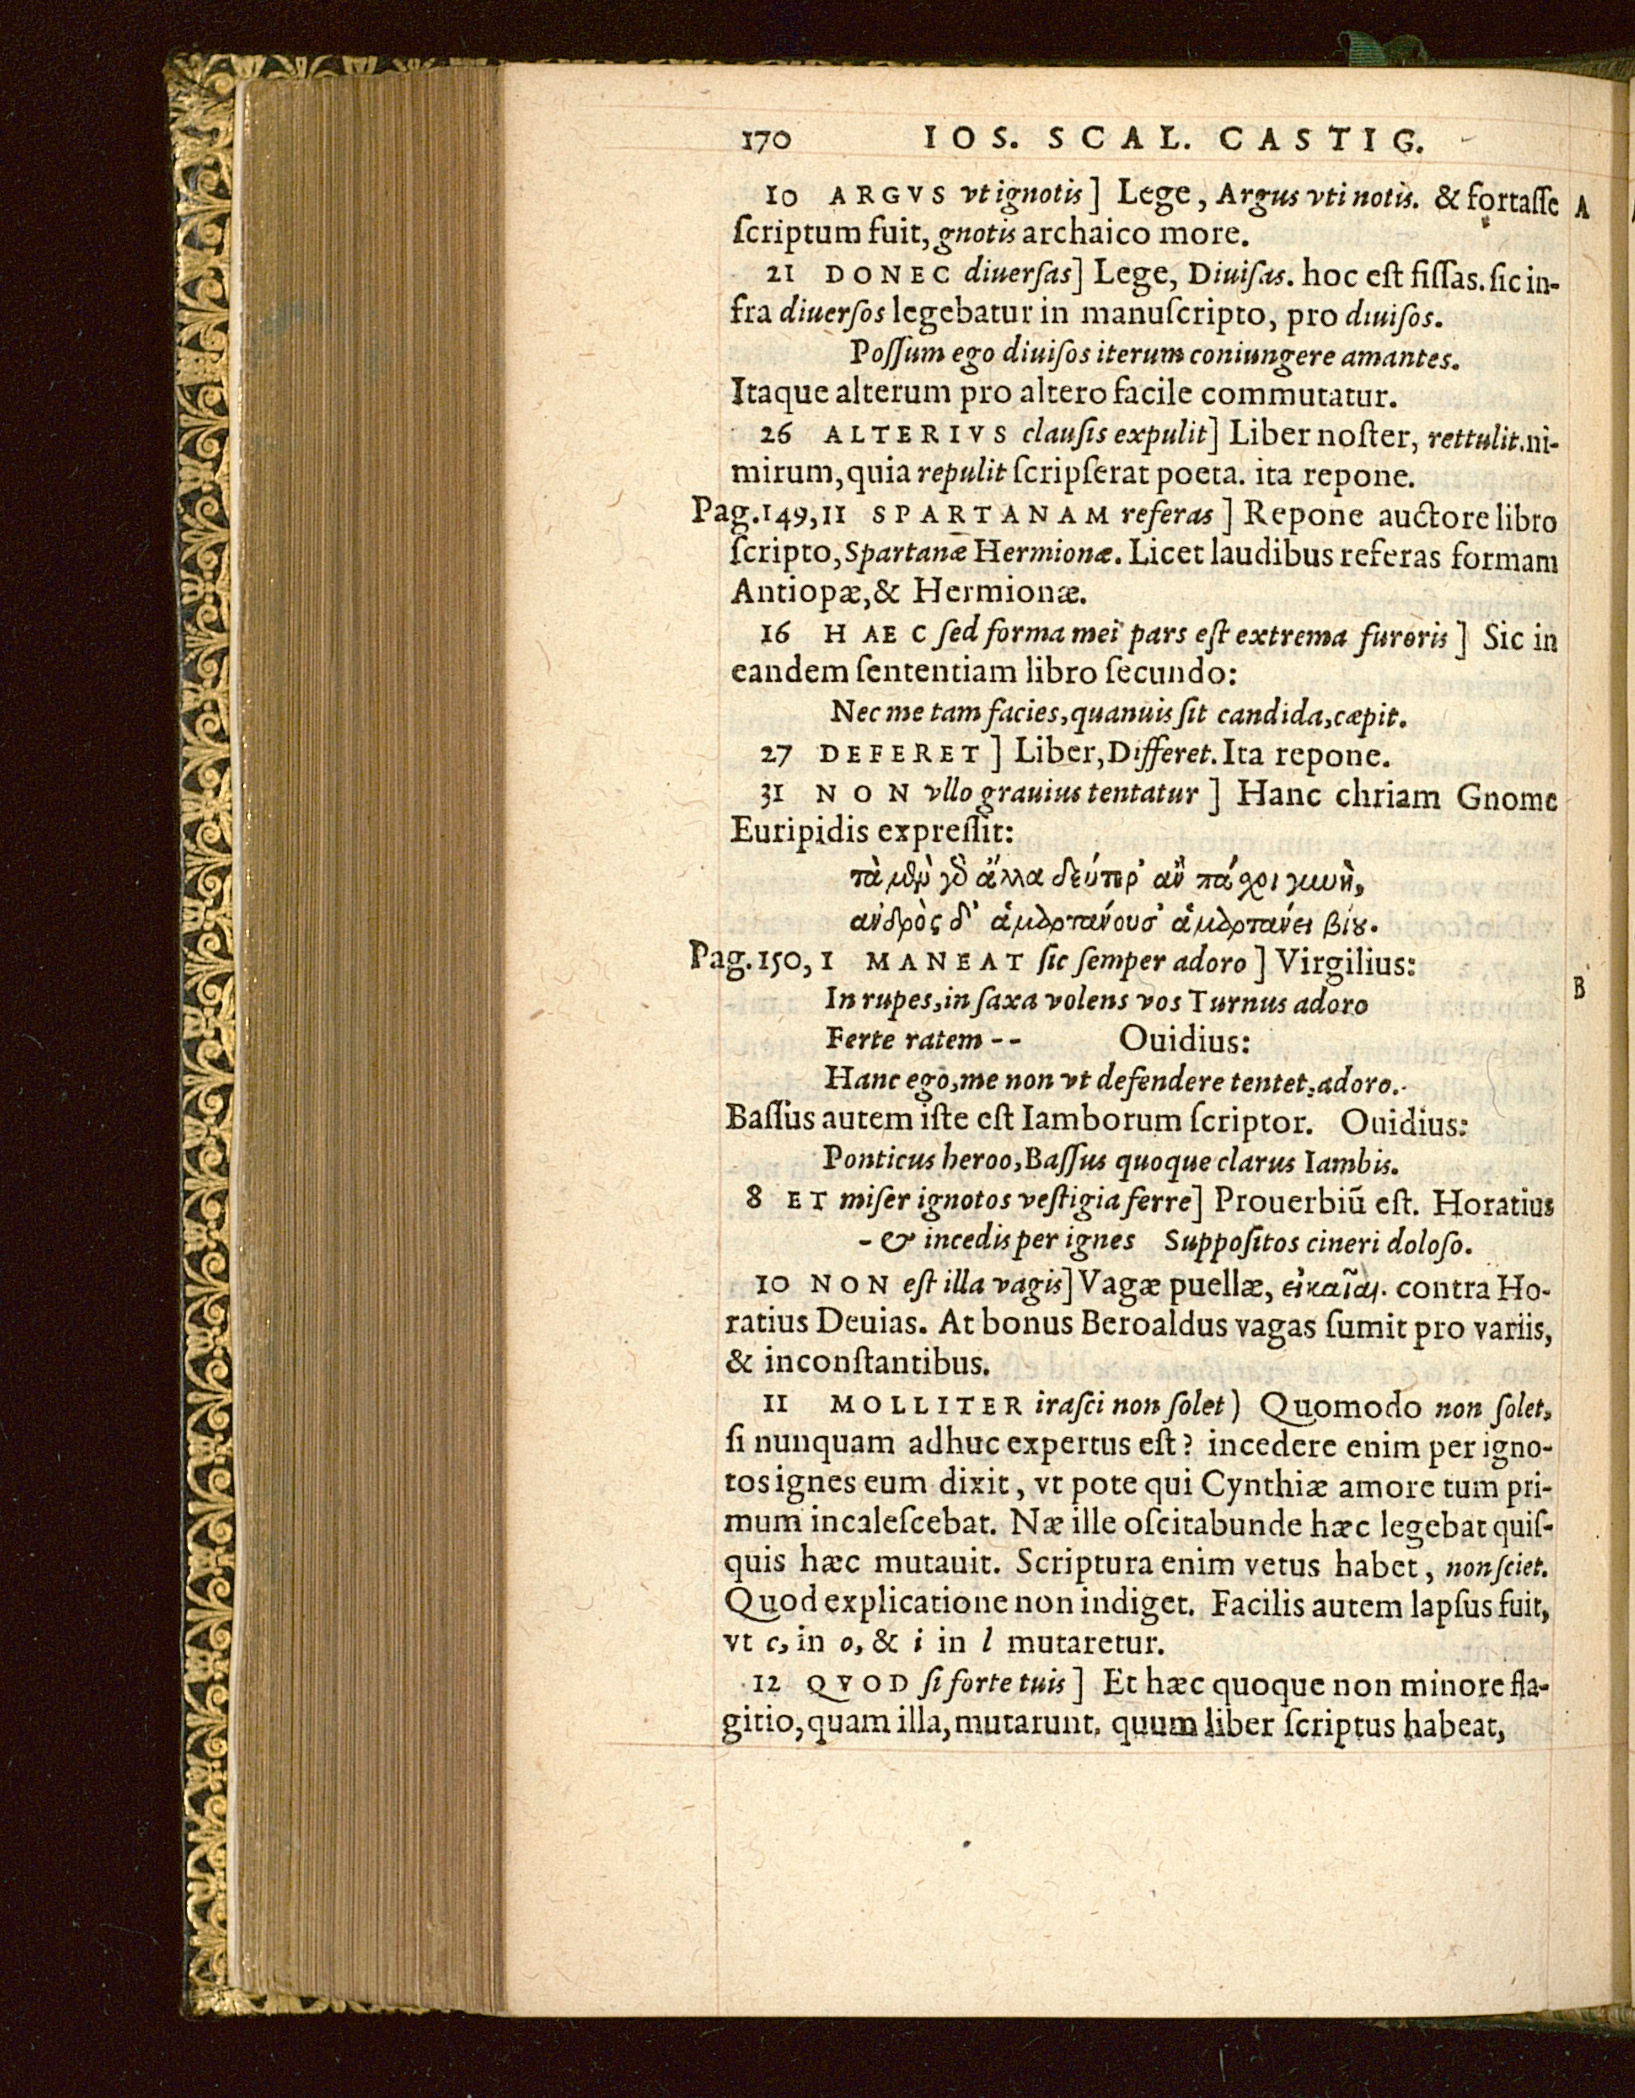 170 IOS. SCAL. CASTIG.
10 ARGVS vt ignotis] Lege, Argus vti notis. & fortasse A
scriptum fuit, gnotis archaico more.
21 DONEC diuersas] Lege, Diuisas. hoc est fissas. sic in-
fra diuersos legebatur in manuscripto, pro diuisos.
Possum ego diuisos iterum coniungere amantes.
Itaque alterum pro altero facile commutatur.
26 ALTERIVS clausis expulit] Liber noster, rettulit. ni-
mirum, quia repulit scripserat poeta. ita repone.
Pag. 149, 11 SPARTANAM referas] Repone auctore libro
scripto, Spartanæ Hermionæ. Licet laudibus referas formam
Antiopæ, & Hermionæ.
16 HAEC sed forma mei pars est extrema furoris] Sic in
eandem sententiam libro secundo:
Nec me tam facies, quanuis sit candida, cæpit.
27 DEFERET] Liber, Differet. Ita repone.
31 NON vllo grauius tentatur] Hanc chriam Gnome
Euripidis expressit:
τὰ μὲν γὸ ἄλλα δεύτερ' ἂν πάχοι γυνὴ,
ἀνδρὸς δ' ἁμαρτάνουσ' ἁμαρτάνει βίου.
Pag. 150, 1 MANEAT sic semper adoro] Virgilius:
In rupes, in saxa volens vos Turnus adoro B
Ferte ratem -- Ouidius:
Hanc ego, me non vt defendere tentet, adoro.
Bassus autem iste est Iamborum scriptor. Ouidius:
Ponticus heroo, Bassus quoque clarus Iambis.
8 ET miser ignotos vestigia ferre] Prouerbiũ est. Horatius
- & incedis per ignes Suppositos cineri doloso.
10 NON est illa vagis] Vagæ puellæ, εἰκαῖαι. contra Ho-
ratius Deuias. At bonus Beroaldus vagas sumit pro variis,
& inconstantibus.
11 MOLLITER irasci non solet) Quomodo non solet,
si nunquam adhuc expertus est? incedere enim per igno-
tos ignes eum dixit, vt pote qui Cynthiæ amore tum pri-
mum incalescebat. Næ ille oscitabunde hæc legebat quis-
quis hæc mutauit. Scriptura enim vetus habet, non sciet.
Quod explicatione non indiget. Facilis autem lapsus fuit,
vt c, in o, & i in l mutaretur.
12 QVOD si forte tuis] Et hæc quoque non minore fla-
gitio, quam illa, mutarunt. quum liber scriptus habeat,